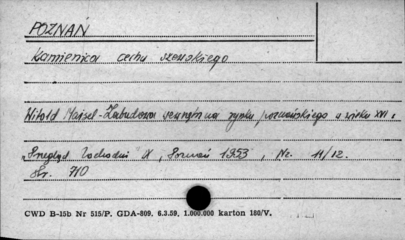 POZNAŃ
Kamienica cechu szewskiego
Witold Maisel - Zabudowa wewnętrzna rynku poznańskiego w wieku XVI,
"Przegląd Zachodni" IX, Poznań 1953, Nr. 11/12.
Str. 710
CWD B-15b Nr 515/P. GDA-809. 6.3.59. 1.000.000 karton 180/V.